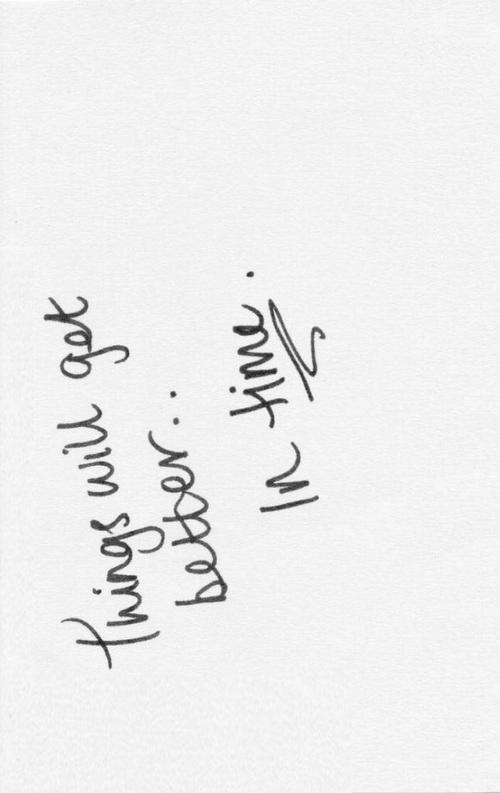 Things will get
better..
In time.